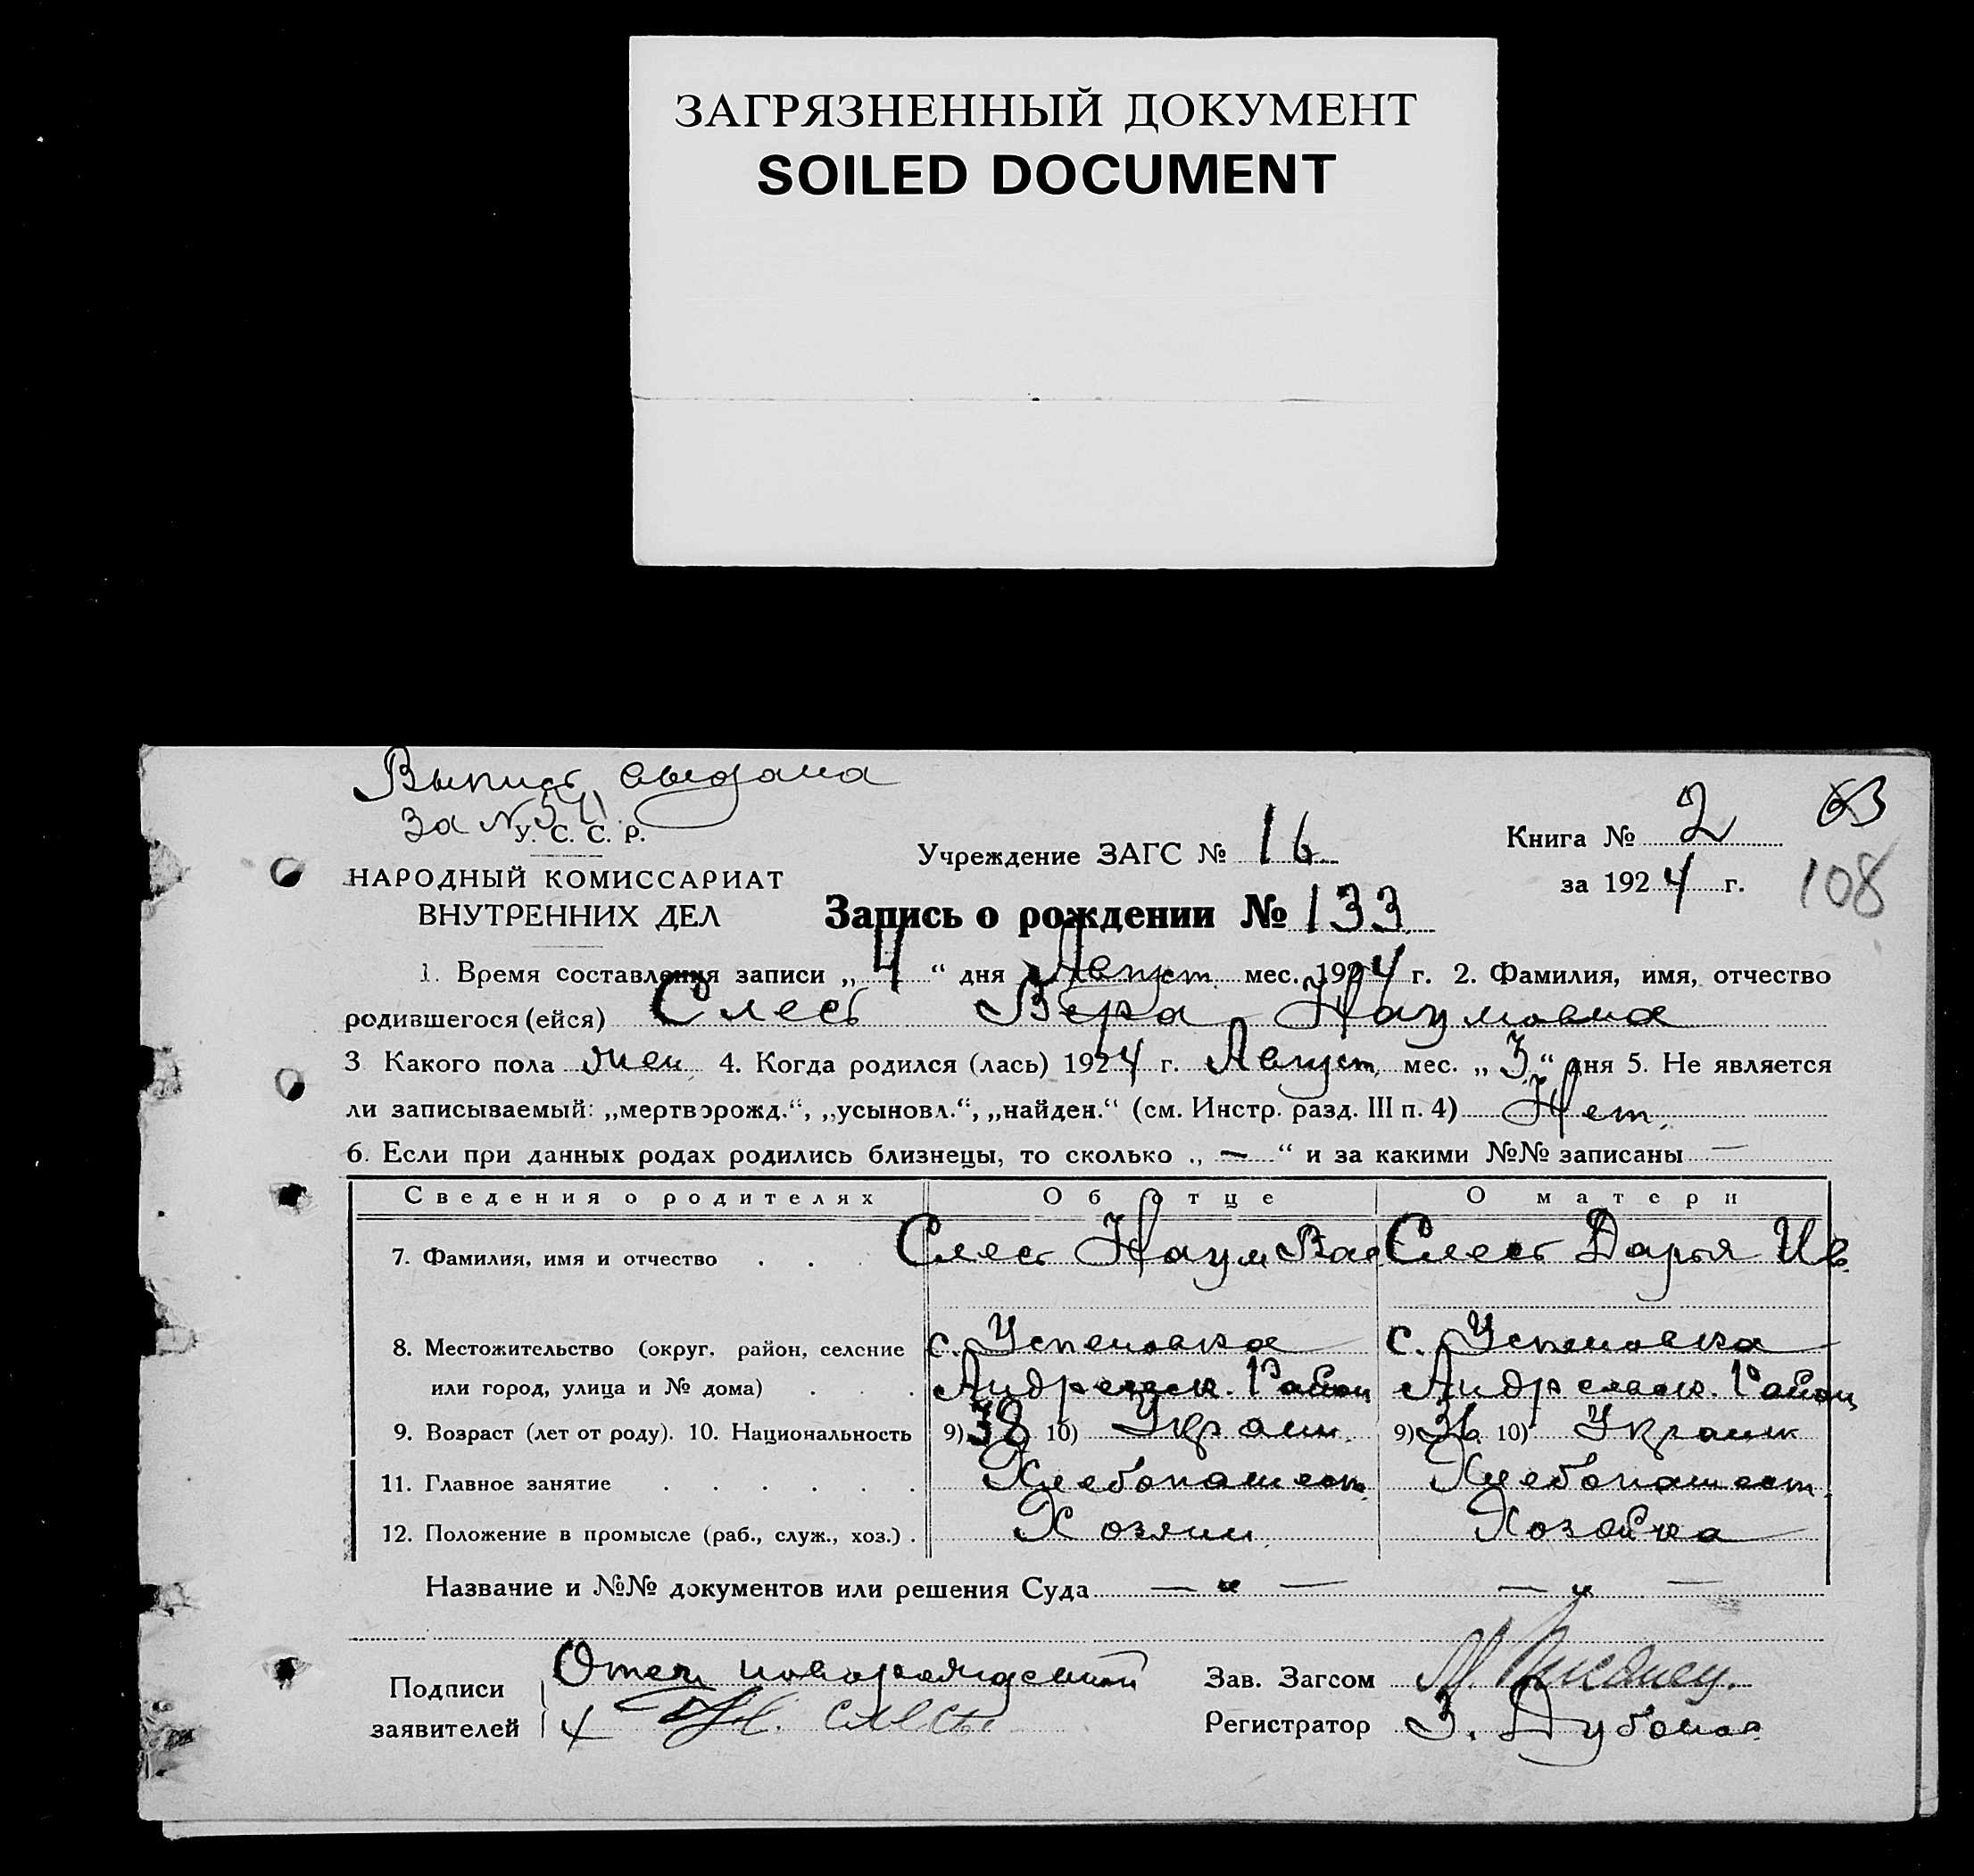 ЗАГРЯЗНЕННЫЙ ДОКУМЕНТ
SOILED DOCUMENT
Выпись выдана
За № 541
У. С. С. Р.
НАРОДНЫЙ КОМИССАРИАТ
ВНУТРЕННИХ ДЕЛ
Учреждение ЗАГС № 16
Книга № 2
за 1924 г.
108
Запись о рождении № 133
1. Время составления записи „4“ дня Август мес. 1924 г. 2. Фамилия, имя, отчество
родившегося (ейся) Слесь Вера Наумовна
3 Какого пола жен. 4. Когда родился (лась) 1924 г. Август мес. „3“ дня 5. Не является
ли записываемый: „мертворожд.“, „усыновл.“, „найден.“ (см. Инстр. разд. III п. 4) Нет.
6. Если при данных родах родились близнецы, то сколько „ — “ и за какими №№ записаны —
Сведения о родителях Об отце О матери
7. Фамилия, имя и отчество . . . Слесь Наум Вас Слесь Дарья Ив.
8. Местожительство (округ, район, селение с. Успеновка с. Успеновка
или город, улица и № дома) . . . Андреевск. Район Андреевск. Район
9. Возраст (лет от роду). 10. Национальность 9) 38 10) Украин. 9) 36 10) Украинк
11. Главное занятие . . . . . . Хлебопашест. Хлебопашест.
12. Положение в промысле (раб., служ., хоз.) . Хозяин Хозяйка
Название и №№ документов или решения Суда — „ — — „ —
Подписи
заявителей
Отец новорожденной
Н. Слесь
Зав. Загсом
Регистратор З.